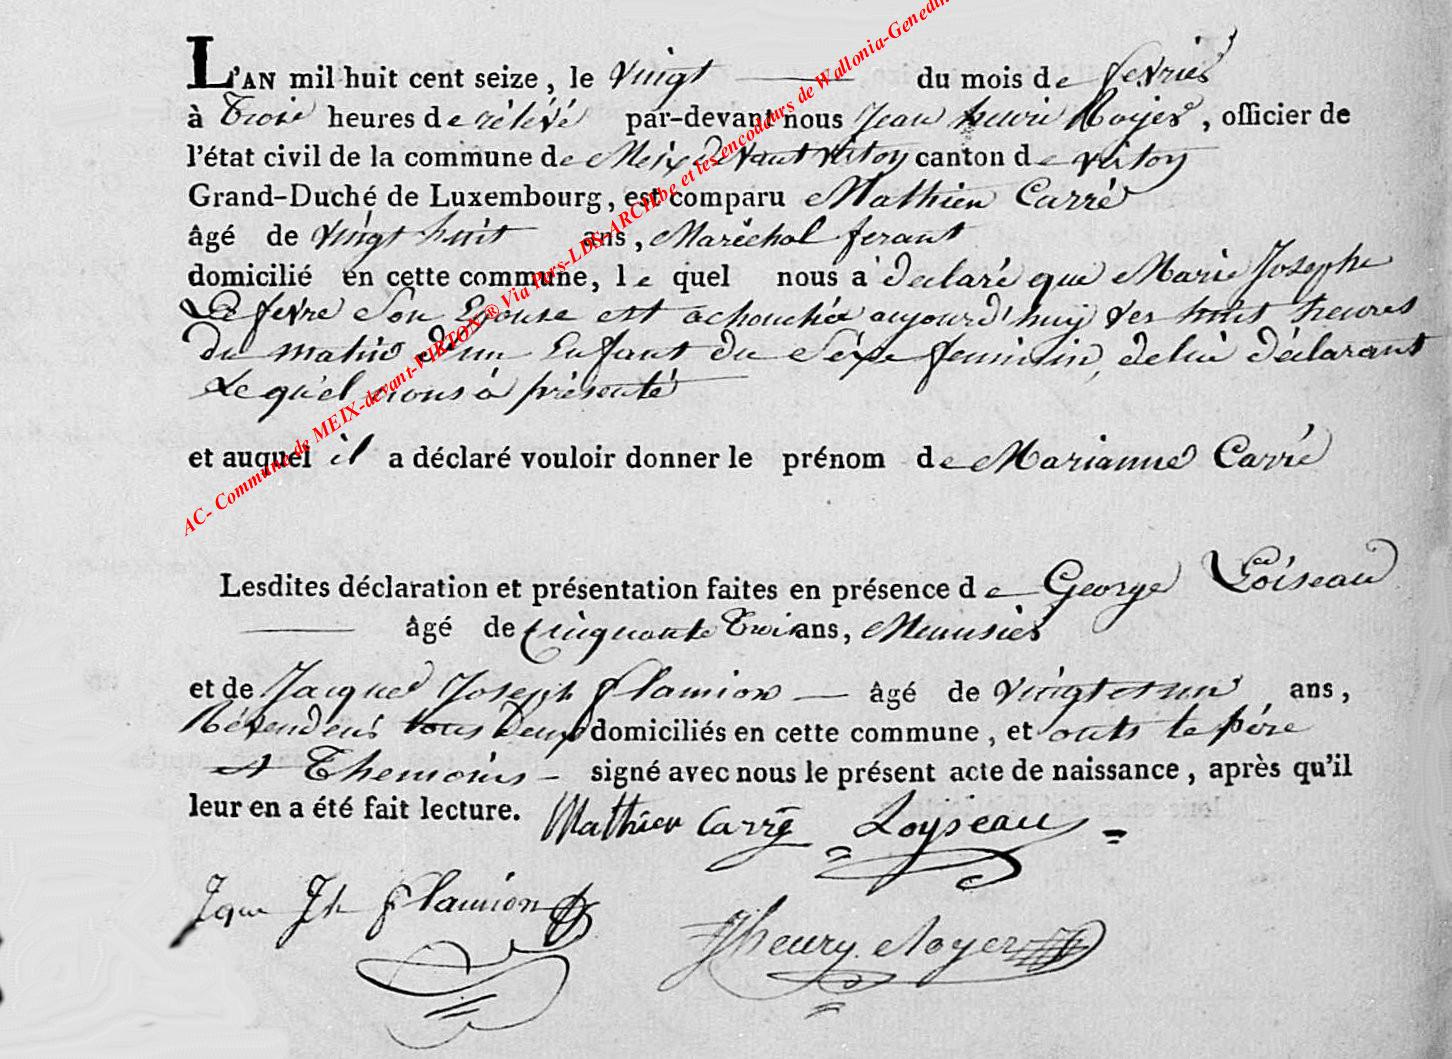 L'AN mil huit cent seize, le vingt du mois de fevrier
à Trois heures de rélévé par-devant nous Jean henri Noyer, officier de
l'état civil de la commune de Meix devant virton canton de virton
Grand-Duché de Luxembourg, est comparu Mathieu Carré
âgé de vingt huit ans, Maréchal ferant
domicilié en cette commune, le quel nous a déclaré que Marie Josephe
Le fevre Son Epouse est achouchée aujourd'huÿ ver huit heures
du matin d'un Enfant du Séxe feminin, de lui déclarant
Le quel nous à présenté
et auquel il a déclaré vouloir donner le prénom de Marianne Carré
Lesdites déclaration et présentation faites en présence de George Loiseau
âgé de cinquante Trois ans, Menusier
et de Jacque Joseph flamion âgé de vingt et un ans,
tous deux domiciliés en cette commune, et onts le pére
et Themoins signé avec nous le présent acte de naissance, après qu'il
leur en a été fait lecture. Mathieu Carré Loyseau
Jque Jh flamion JhenryNoyer
AC- Commune de MEIX-devant-VIRTON ® Via Pars-LDS-ARCH.be et les encodeurs de Wallonia-Genedin